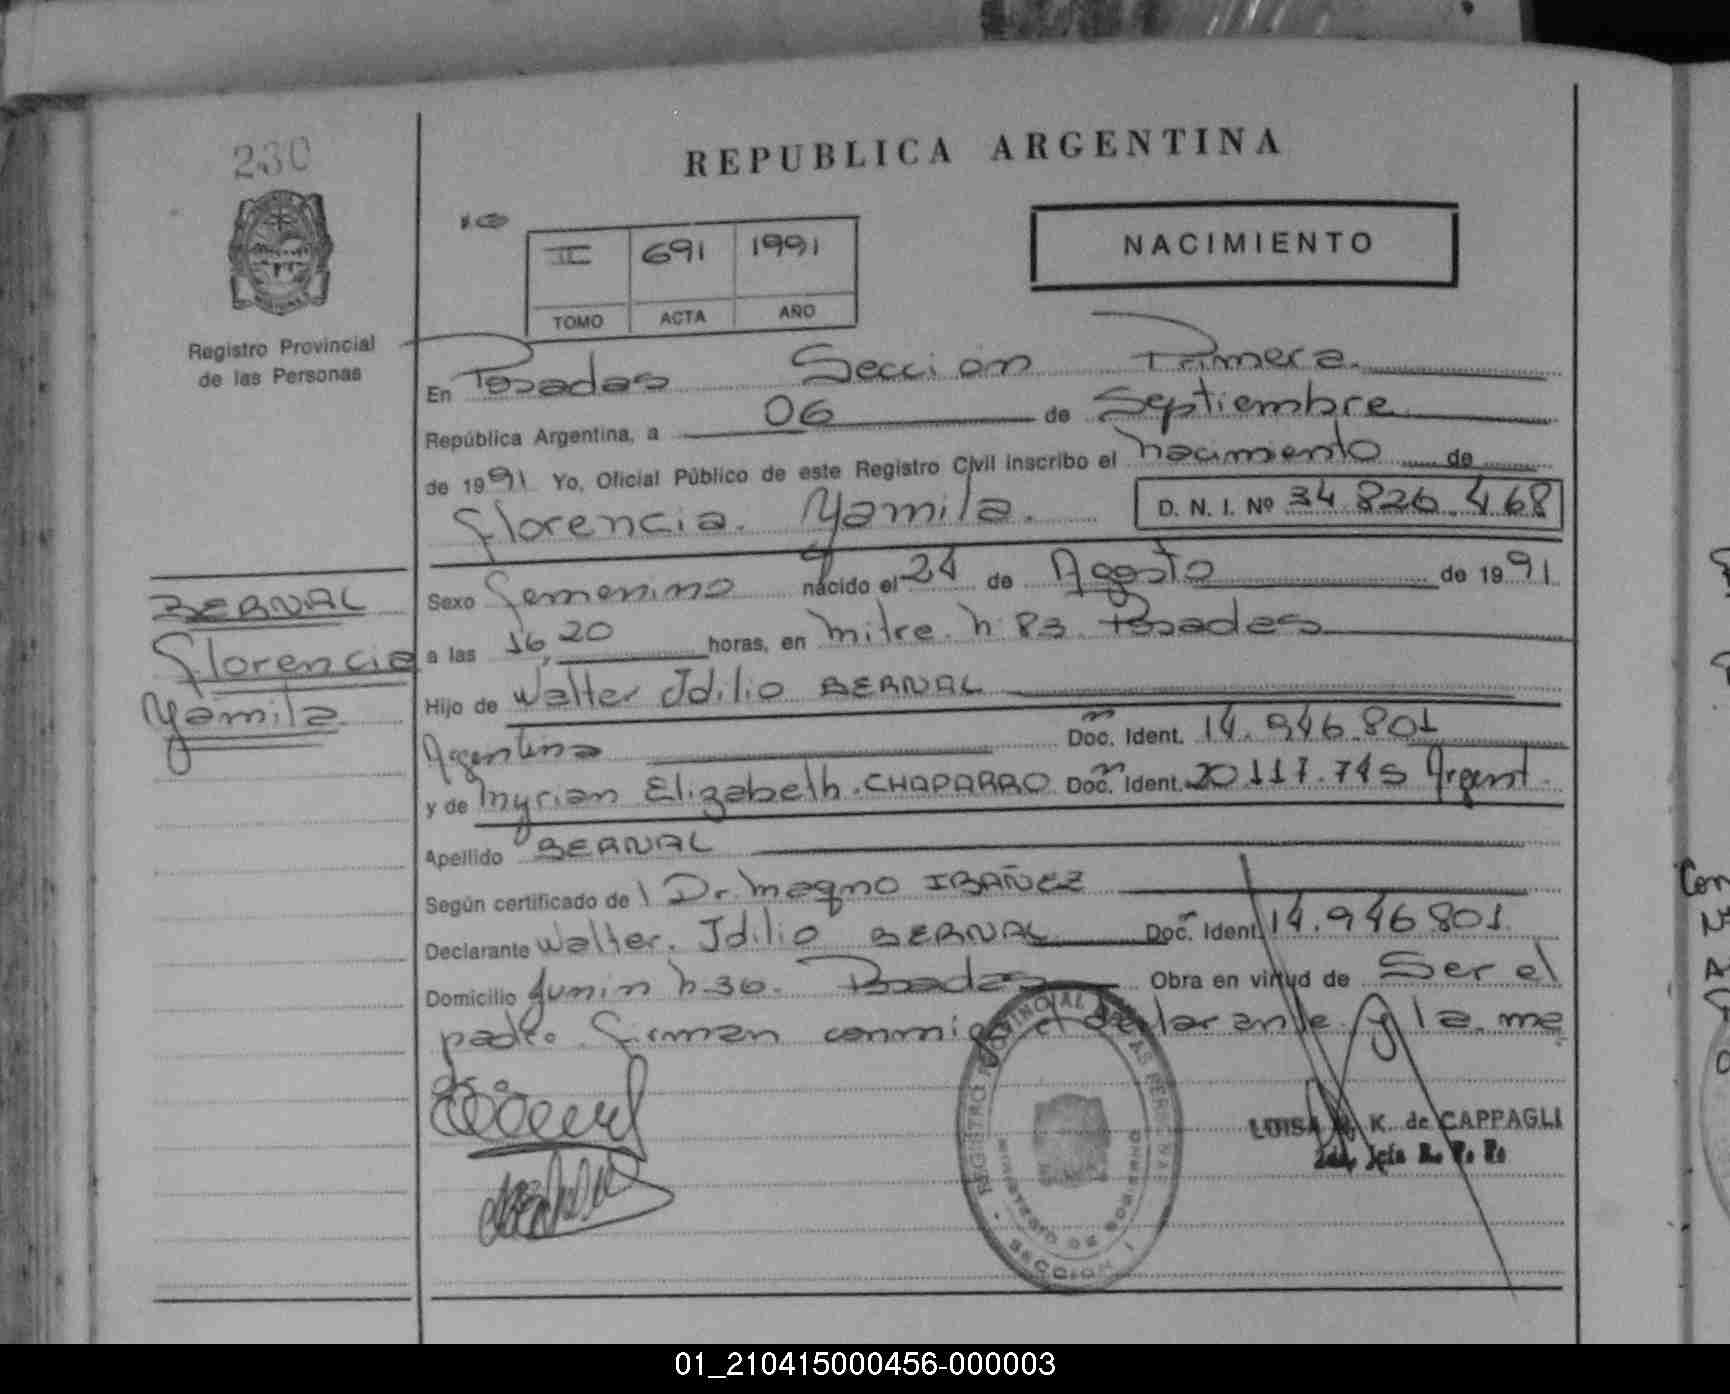 230
REPUBLICA ARGENTINA
II 691 1991
TOMO ACTA AÑO
NACIMIENTO
Registro Provincial
de las Personas
En Posadas Sección Primera
República Argentina, a 06 de Septiembre
de 1991 Yo, Oficial Público de este Registro Civil inscribo el nacimiento de
Florencia Yamila. D. N. I. Nº 34.826.468
BERNAL
Florencia
Yamila
Sexo Femenino nacido el 24 de Agosto de 1991
a las 16,20 horas, en Mitre n 83 Posadas
Hijo de Walter Idilio BERNAL
Argentina Doc. Ident. 14.946.801
y de Myrian Elizabeth CHAPARRO Doc. Ident. 20.117.745 Argent.
Apellido BERNAL
Según certificado de Dr. Magno IBAÑEZ
Declarante Walter Idilio BERNAL Doc. Ident. 14.946.801
Domicilio Junin n 36. Posadas Obra en virtud de Ser el
padre. Firman conmigo el declarante y la ma
REGISTRO PROVINCIAL DE LAS PERSONAS
SECCION
LUISA K. de CAPPAGLI
01_210415000456-000003